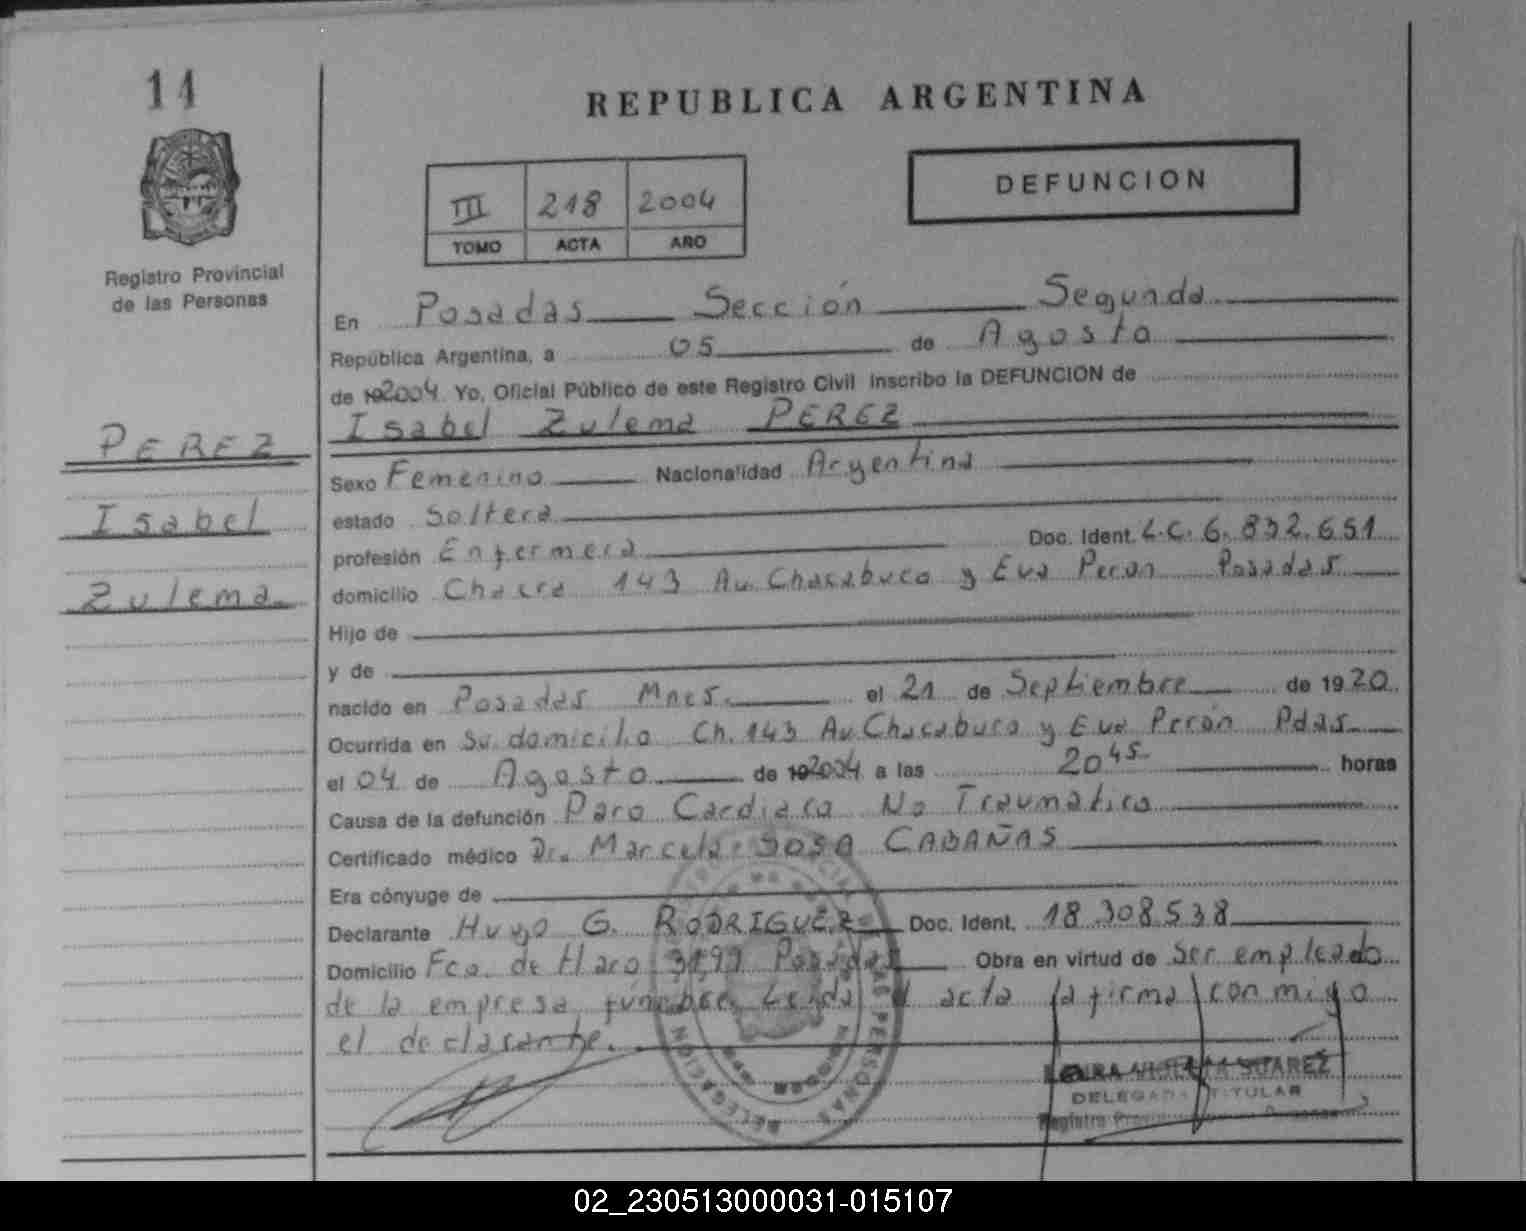 14
REPUBLICA ARGENTINA
DEFUNCION
III 218 2004
TOMO ACTA AÑO
Registro Provincial
de las Personas
En Posadas Sección Segunda
República Argentina, a 05 de Agosto
de 192004 Yo, Oficial Público de este Registro Civil inscribo la DEFUNCION de
Isabel Zulema PEREZ
PEREZ
Isabel
Zulema
Sexo Femenino Nacionalidad Argentina
estado Soltera
profesión Enfermera Doc. Ident. L.C. 6.832.651
domicilio Chacra 143 Av. Chacabuco y Eva Peron Posadas
Hijo de
y de
nacido en Posadas Mnes. el 21 de Septiembre de 1920
Ocurrida en Su domicilio Ch. 143 Av. Chacabuco y Eva Perón Pdas
el 04 de Agosto de 192004 a las 2045 horas
Causa de la defunción Paro Cardiaco No Traumatico
Certificado médico Dr. Marcelo SOSA CABAÑAS
Era cónyuge de
Declarante Hugo G. RODRIGUEZ Doc. Ident. 18.308.538
Domicilio Fco. de Haro Posadas Obra en virtud de Ser empleado
de la empresa fúnebre. Leida el acta la firma conmigo
el declarante.
SUAREZ
DELEGADA TITULAR
Registro
DELEGACION
PERSONAS
02_230513000031-015107